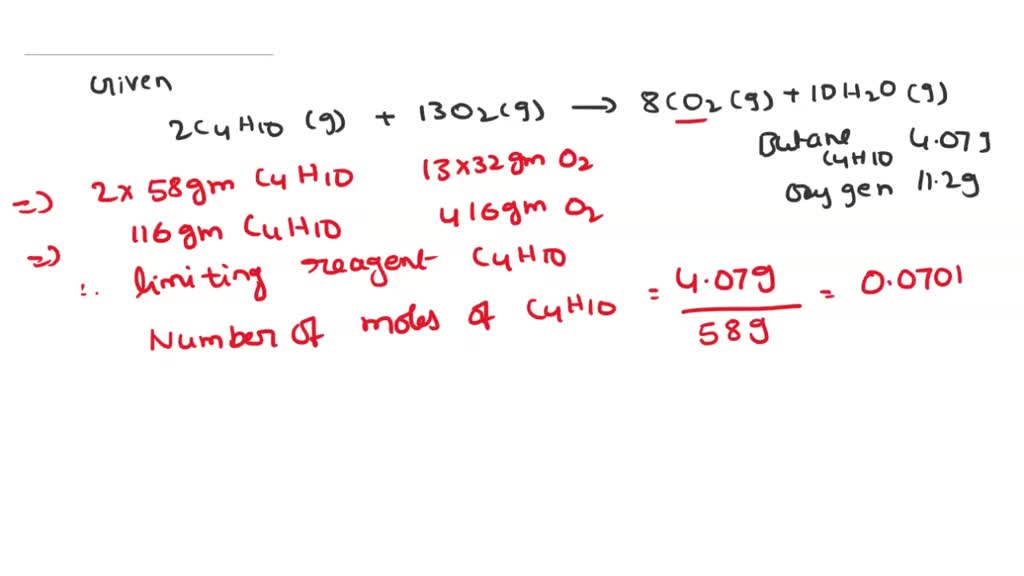 Given
2C4H10 (g) + 13O2(g) → 8CO2(g) + 10H2O(g)
Butane 4.07g
C4H10
Oxygen 11.2g
=> 2x 58gm C4H10 13x32gm O2
=> 116gm C4H10 416gm O2
∴ limiting reagent C4H10
Number of moles of C4H10 = 4.07g / 58g = 0.0701